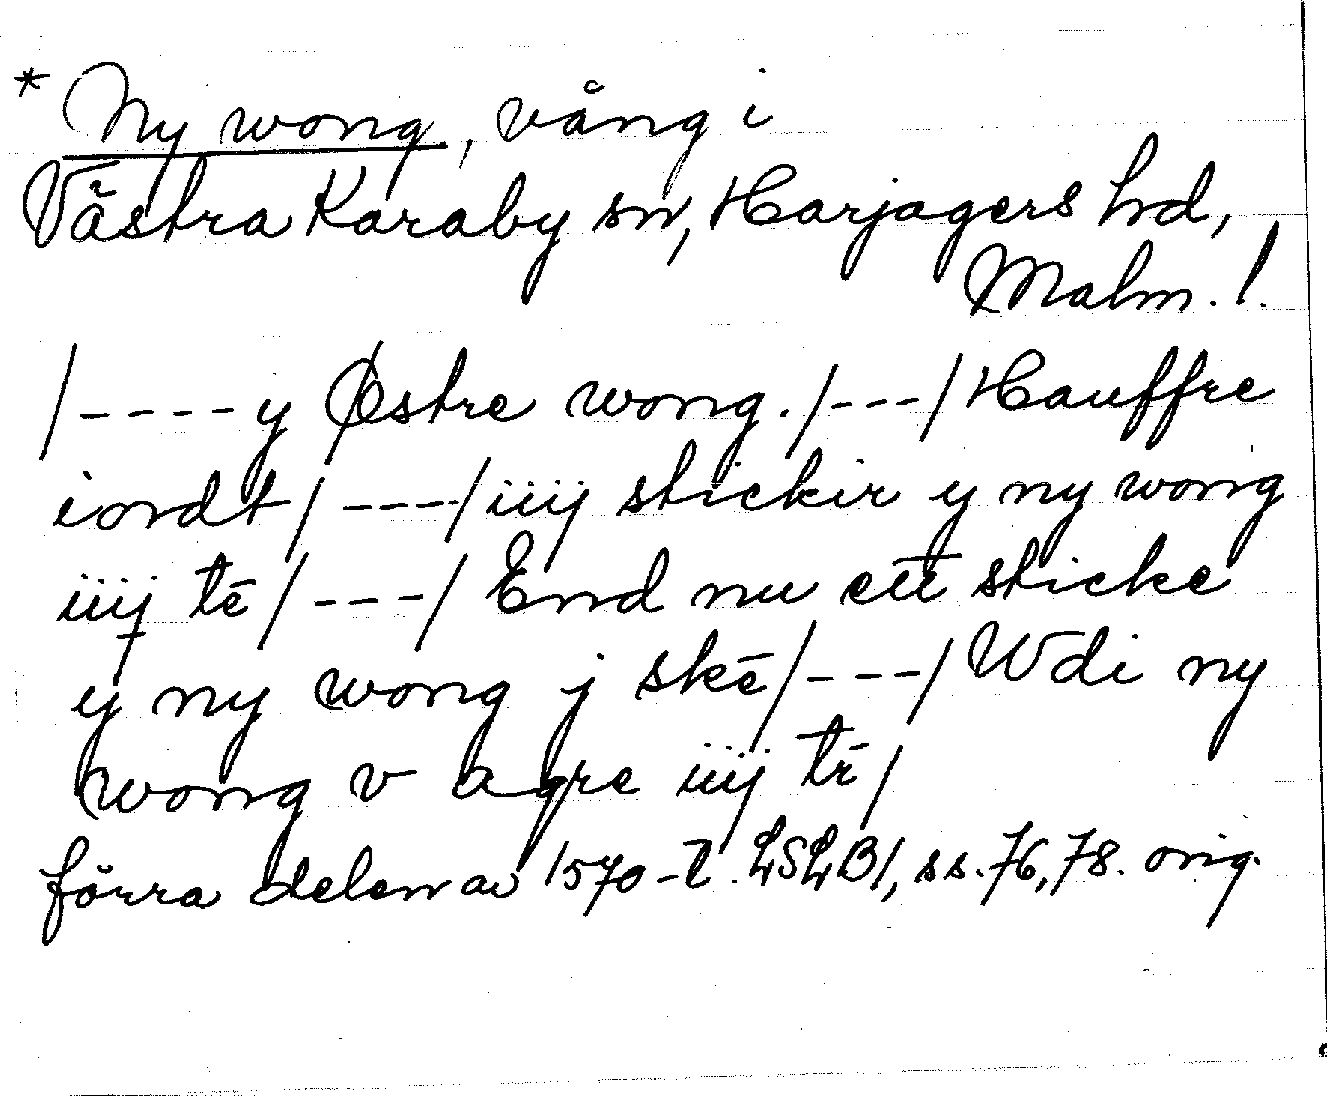 * Ny wong, vång i
Västra Karaby sn, Harjagers hd,
Malm. l.
/----y Østre wong./---/Hauffre
iordt/ ---/iiij stickir y ny wong
iiij tē/---/ End nu ett sticke
y ny wong j skē/---/Wdi ny
wong v agre iiij tr̄/
förra delen av 1570-t. LSLB1, ss. 76, 78. orig.